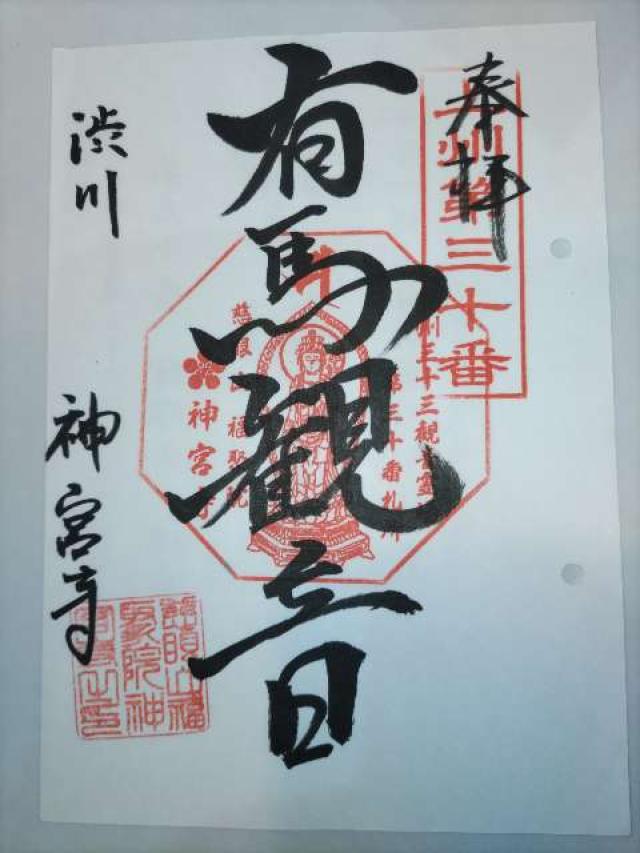 奉拝
上州第三十番
有馬観音
州三十三観音霊
第三十番札所
慈眼
福聚院
神宮寺
渋川
神宮寺
慈眼山福
聚院神
宮寺之印